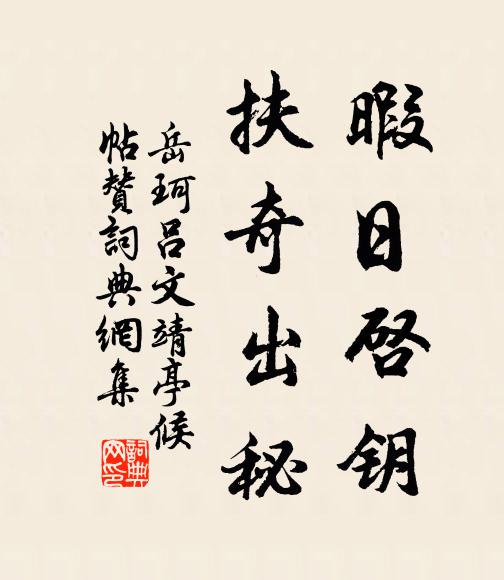 暇日启钥
扶奇出秘
岳珂吕文靖亭候
帖赞詞典網集
詞典
网印